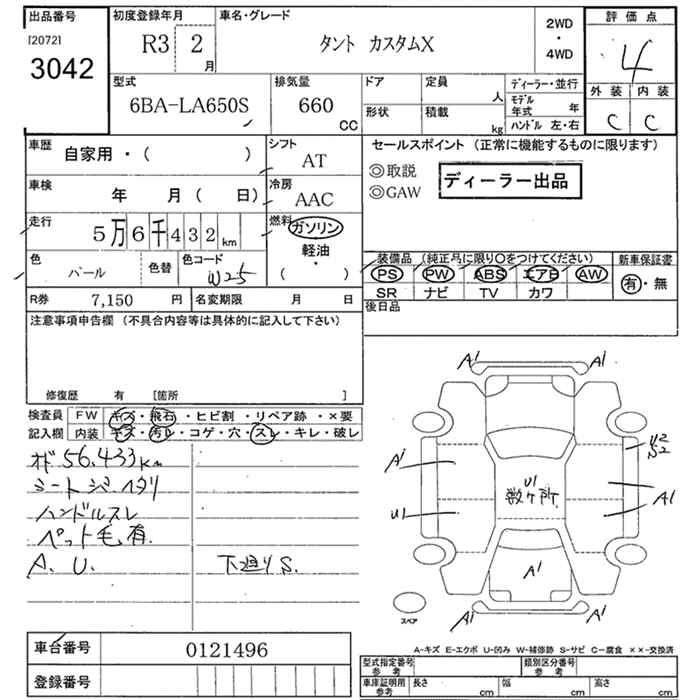 出品番号
[2072]
3042
初度登録年月
R3 2 月
車名・グレード
タント カスタムX
2WD
・
4WD
評価点
4
外装 内装
C C
型式
6BA-LA650S
排気量
660
CC
ドア
定員
人
形状
積載
kg
ディーラー・並行
モデル
年式
年
ハンドル 左・右
車歴
自家用・( )
シフト
AT
車検
年 月( 日)
冷房
AAC
走行
5万6千432km
燃料
ガソリン
軽油
・
( )
色
パール
色替
色コード
W25
R券 7,150 円
名変期限 月 日
セールスポイント (正常に機能するものに限ります)
◎取説
◎GAW
ディーラー出品
装備品 (純正品に限り○をつけてください)
PS PW ABS エアB AW
SR ナビ TV カワ
新車保証書
有・無
後日品
注意事項申告欄 (不具合内容等は具体的に記入して下さい)
修復歴 有 [箇所 ]
検査員
記入欄
FW キズ・飛石・ヒビ割・リペア跡・×要
内装 キズ・汚レ・コゲ・穴・スレ・キレ・破レ
オド 56,433km
シートシミ・ヘタリ
ハンドルスレ
ペット毛,有.
A. U. 下廻りS.
A1 A1
U2
S2
A1
U1
数ヶ所
A1
U1
A1
A1 A1
スペア
A-キズ E-エクボ U-凹み W-補修跡 S-サビ C-腐食 ××-交換済
車台番号 0121496
登録番号
型式指定番号
参考
類別区分番号
参考
車庫証明用
参考
長さ cm
幅 cm
高さ cm